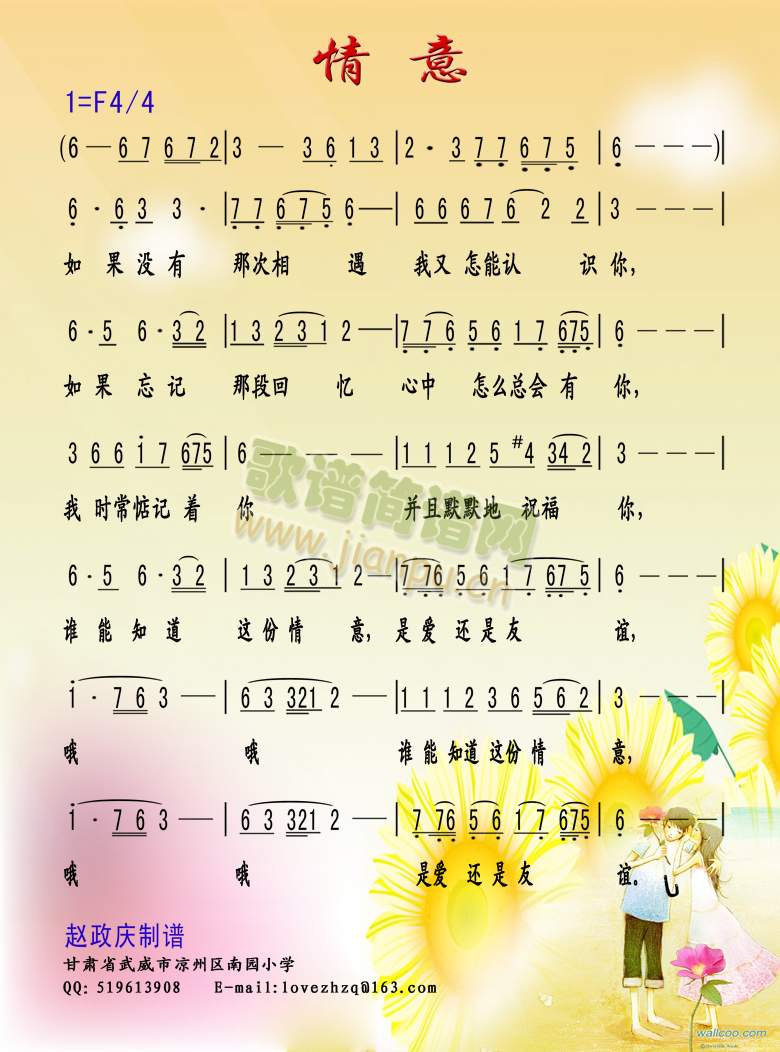 情意
1=F4/4
(6—67672|3—3613|2·377675|6———)|
6·633·|776756—|6667622|3———|
如果没有那次相遇我又怎能认识你,
6·56·32|132312—|7765617675|6———|
如果忘记那段回忆心中怎么总会有你,
366i7675|6———|11125#4342|3———|
我时常惦记着你并且默默地祝福你,
6·56·32|132312—|7765617675|6———|
谁能知道这份情意,是爱还是友谊,
i·763—|633212—|111236562|3———|
哦哦谁能知道这份情意,
i·763—|633212—|7765617675|6———|
哦哦是爱还是友谊。
赵政庆制谱
甘肃省武威市凉州区南园小学
QQ: 519613908 E-mail:lovezhzq@163.com
歌谱简谱网
www.jianpu.cn
wallcoo.com